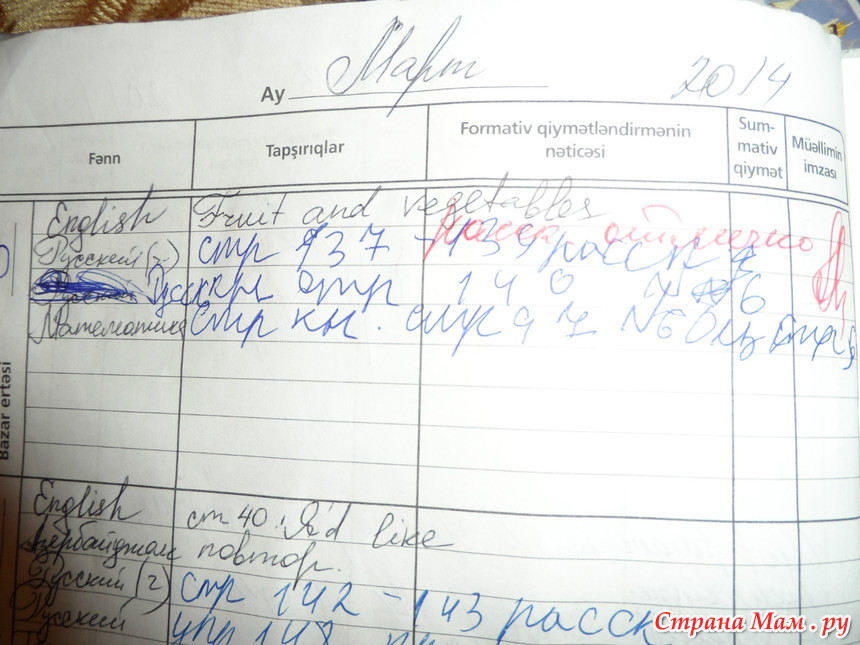 Ay Март 2014
Fənn Tapşırıqlar Formativ qiymətləndirmənin nəticəsi Sum-mativ qiymət Müəllimin imzası
English Fruit and vegetables
Русский (2) стр 137 - 139 расск отлично
Русский стр 140
Математика стр кн. стр 97 №6
Bazar ertəsi
English ст 40. I'd like
Азербайджан повтор.
Русский (2) стр 142 - 143 расск
Русский упр 148
Страна Мам.ру